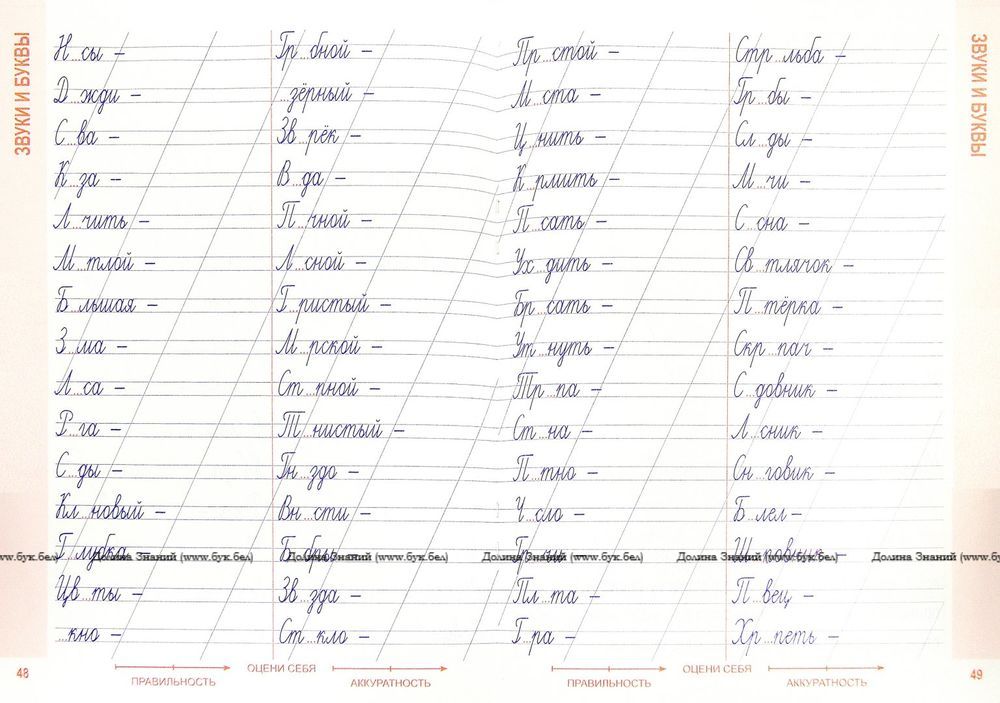 ЗВУКИ И БУКВЫ
Н...сы –
Д...жди –
С...ва –
К...за –
Л...чить –
М...тлой –
Б...льшая –
З...ма –
Л...са –
Р...га –
С...ды –
Кл...новый –
Г...лубка –
Цв...ты –
...кно –
Гр...бной –
...зёрный –
Зв...рёк –
В...да –
П...чной –
Л...сной –
Г...ристый –
М...рской –
Ст...пной –
Т...нистый –
Гн...здо –
Вн...сти –
Зв...зда –
Ст...кло –
Пр...стой –
М...ста –
Ц...нить –
К...рмить –
П...сать –
Ух...дить –
Бр...сать –
Ут...нуть –
Тр...па –
Ст...на –
П...тно –
Ч...сло –
Гр...чи –
Пл...та –
Г...ра –
Стр...льба –
Гр...бы –
Сл...ды –
М...чи –
С...сна –
Св...тлячок –
П...тёрка –
Скр...пач –
С...довник –
Л...сник –
Сн...говик –
Б...лел –
Ш...повник –
П...вец –
Хр...петь –
ЗВУКИ И БУКВЫ
www.бук.бел) Долина Знаний (www.бук.бел) Долина Знаний (www.бук.бел) Долина Знаний (www.бук.бел) Долина Знаний (www.бук.бел) Долина Знаний (www.бу
48
ОЦЕНИ СЕБЯ
ПРАВИЛЬНОСТЬ
АККУРАТНОСТЬ
ОЦЕНИ СЕБЯ
ПРАВИЛЬНОСТЬ
АККУРАТНОСТЬ
49